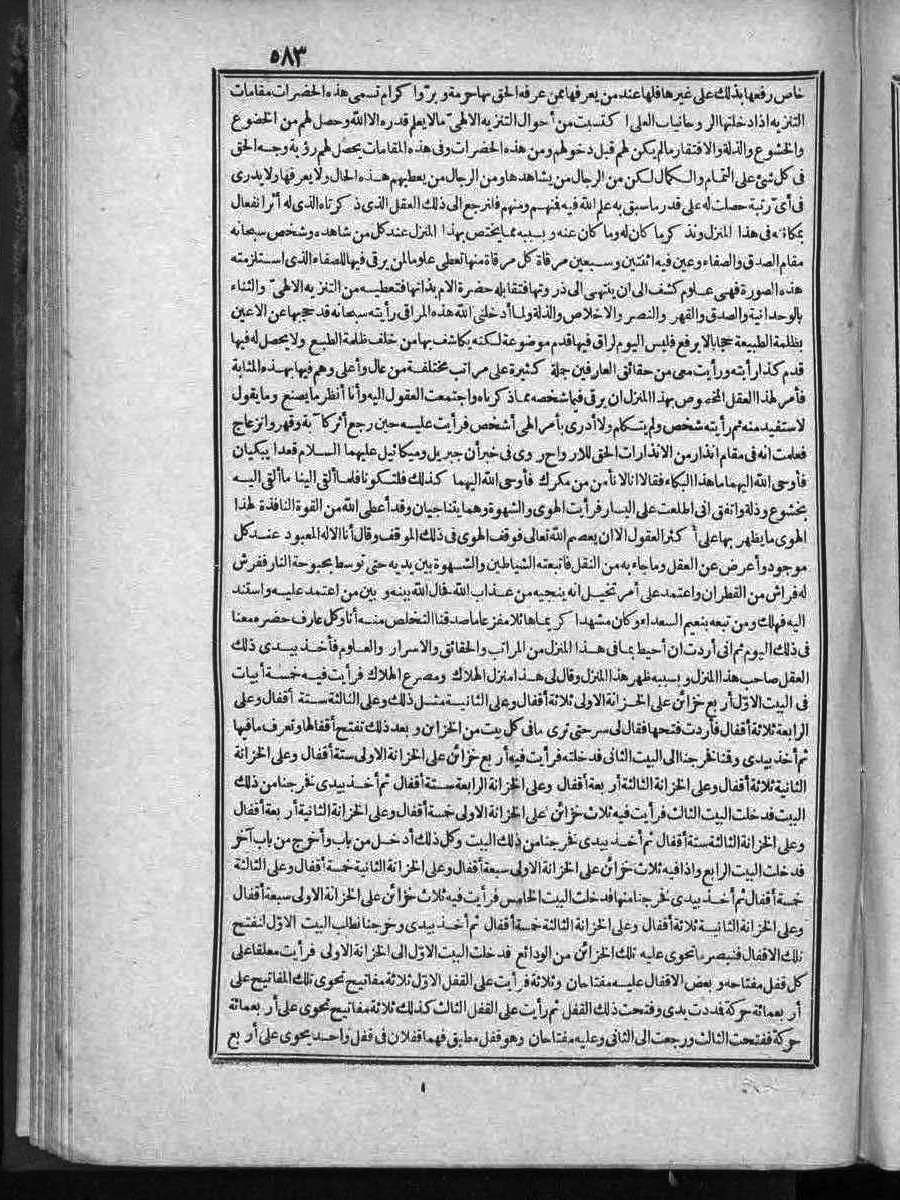 ٥٨٣
خاص رفعها بذلك على غيرها فلها عند من يعرفها ممن عرفه الحق بها حرمة وبرّ واكرام تسمى هذه الحضرات مقامات
التنزيه اذا دخلتها الروحانيات العلى اكتسبت من أحوال التنزيه الالهىّ مالا يعلم قدره الا الله وحصل لهم من الخضوع
والخشوع والذلة والافتقار ما لم يكن لهم قبل دخولهم ومن هذه الحضرات وفى هذه المقامات يحصل لهم رؤية وجه الحق
فى كل شئ على التمام والكمال لكن من الرجال من يشاهدها ومن الرجال من يعطيهم هذه الحال ولا يعرفها ولا يدرى
فى أىّ رتبة حصلت له على قدر ما سبق به علم الله فيه فنهم ومنهم فلنرجع الى ذلك العقل الذى ذكرناه الذى له أثر انفعال
بمكانته فى هذا المنزل ونذكر ما كان له وما كان عنه وبسببه مما يختص بهذا المنزل عند كل من شاهده وشخص سبحانه
مقام الصدق والصفاء وعين فيه اثنتين وسبعين مرقاة كل مرقاة منها تعطى علوما لمن يرقى فيها للصفاء الذى استلزمته
هذه الصورة فهى علوم كشف الى ان ينتهى الى ذروتها فتقابله حضرة الام بذاتها فتعطيه من التنزيه الالهىّ والثناء
بالوحدانية والصدق والقهر والنصر والاخلاص والذلة ولما أدخلنى الله هذه المراقى رأيته سبحانه قد حجبها عن الاعين
بظلمة الطبيعة حجابا لا يرفع فليس اليوم لراق فيها قدم موضوعة لكنه يكاشف بها من خلف ظلمة الطبع ولا يحصل له فيها
قدم كذا رأيته ورأيت معى من حقائق العارفين جملة كثيرة على مراتب مختلفة من عال وأعلى وهم فيها بهذه المثابة
فأمر لهذا العقل المخصوص بهذا المنزل ان يرقى فيما شخصه مما ذكرناه واجتمعت العقول اليه وأنا أنظر ما يصنع وما يقول
لاستفيد منه ثم رأيته شخص ولم يتكلم ولا أدرى بأمر الهى أشخص فرأيت عليه حين رجع أثر كآبة وقهر وانزعاج
فعلمت انه فى مقام انذار من الانذارات الحق للارواح روى فى خبر أن جبريل وميكائيل عليهما السلام قعدا يبكيان
فأوحى الله اليهما ما هذا البكاء فقالا انا لا نأمن من مكرك فأوحى الله اليهما كذلك فلتكونا فلما ألقى الينا ما ألقى اليه
بخشوع وذلة واتفق انى اطلعت على اليسار فرأيت الهوى والشهوة وهما يتناجيان وقد أعطى الله من القوة النافذة لهذا
الهوى ما يظهر بها على أكثر العقول الا ان يعصم الله تعالى فوقف الهوى فى ذلك الموقف وقال أنا الاله المعبود عند كل
موجود وأعرض عن العقل وما جاء به من النقل فاتبعته الشياطين والشهوة بين يديه حتى توسط بحبوحة النار ففرش
له فراش من القطران واعتمد على أمر تخيل انه ينجيه من عذاب الله فحال الله بينه وبين من اعتمد عليه واستند
اليه فهلك ومن تبعه بنعيم السعداء وكان مشهدا كريما هائلا مفزعا ما صدقنا التخلص منه أنا وكل عارف حضره معنا
فى ذلك اليوم ثم انى أردت ان أحيط بما فى هذا المنزل من المراتب والحقائق والاسرار والعلوم فأخذ بيدى ذلك
العقل صاحب هذا المنزل وبسببه ظهر هذا المنزل وقال لى هذا منزل الهلاك ومصرع الهلاك فرأيت فيه خمسة أبيات
فى البيت الاوّل أربع خزائن على الخزانة الاولى ثلاثة أقفال وعلى الثانية مثل ذلك وعلى الثالثة ستة أقفال وعلى
الرابعة ثلاثة أقفال فأردت فتحها فقال لى سر حتى ترى ما فى كل بيت من الخزائن وبعد ذلك تفتح أقفالها وتعرف ما فيها
ثم أخذ بيدى وقنا فخرجنا الى البيت الثانى فدخلته فرأيت فيه أربع خزائن على الخزانة الاولى ستة أقفال وعلى الخزانة
الثانية ثلاثة أقفال وعلى الخزانة الثالثة أربعة أقفال وعلى الخزانة الرابعة ستة أقفال ثم أخذ بيدى فخرجنا من ذلك
البيت فدخلت البيت الثالث فرأيت فيه ثلاث خزائن على الخزانة الاولى خمسة أقفال وعلى الخزانة الثانية أربعة أقفال
وعلى الخزانة الثالثة ستة أقفال ثم أخذ بيدى فخرجنا من ذلك البيت وكل ذلك أدخل من باب وأخرج من باب آخر
فدخلت البيت الرابع واذا فيه ثلاث خزائن على الخزانة الاولى سبعة أقفال وعلى الخزانة الثانية خمسة أقفال وعلى الثالثة
خمسة أقفال ثم أخذ بيدى فخرجنا منها فدخلت البيت الخامس فرأيت فيه ثلاث خزائن على الخزانة الاولى سبعة أقفال
وعلى الخزانة الثانية ثلاثة أقفال وعلى الخزانة الثالثة خمسة أقفال ثم أخذ بيدى وخرجنا نطلب البيت الاوّل لنفتح
تلك الاقفال فنبصر ما تحوى عليه تلك الخزائن من الودائع فدخلت البيت الاوّل الى الخزانة الاولى فرأيت معلقا على
كل قفل مفتاحه وبعض الاقفال عليه مفتاحان وثلاثة فرأيت على القفل الاوّل ثلاثة مفاتيح تحوى تلك المفاتيح على
أربعمائة حركة فددت يدى وفتحت ذلك القفل ثم رأيت على القفل الثالث كذلك ثلاثة مفاتيح تحوى على أربعمائة
حركة ففتحت الثالث ورجعت الى الثانى وعليه مفتاحان وهو قفل مطبق فهما قفلان فى قفل واحد يحوى على أربع